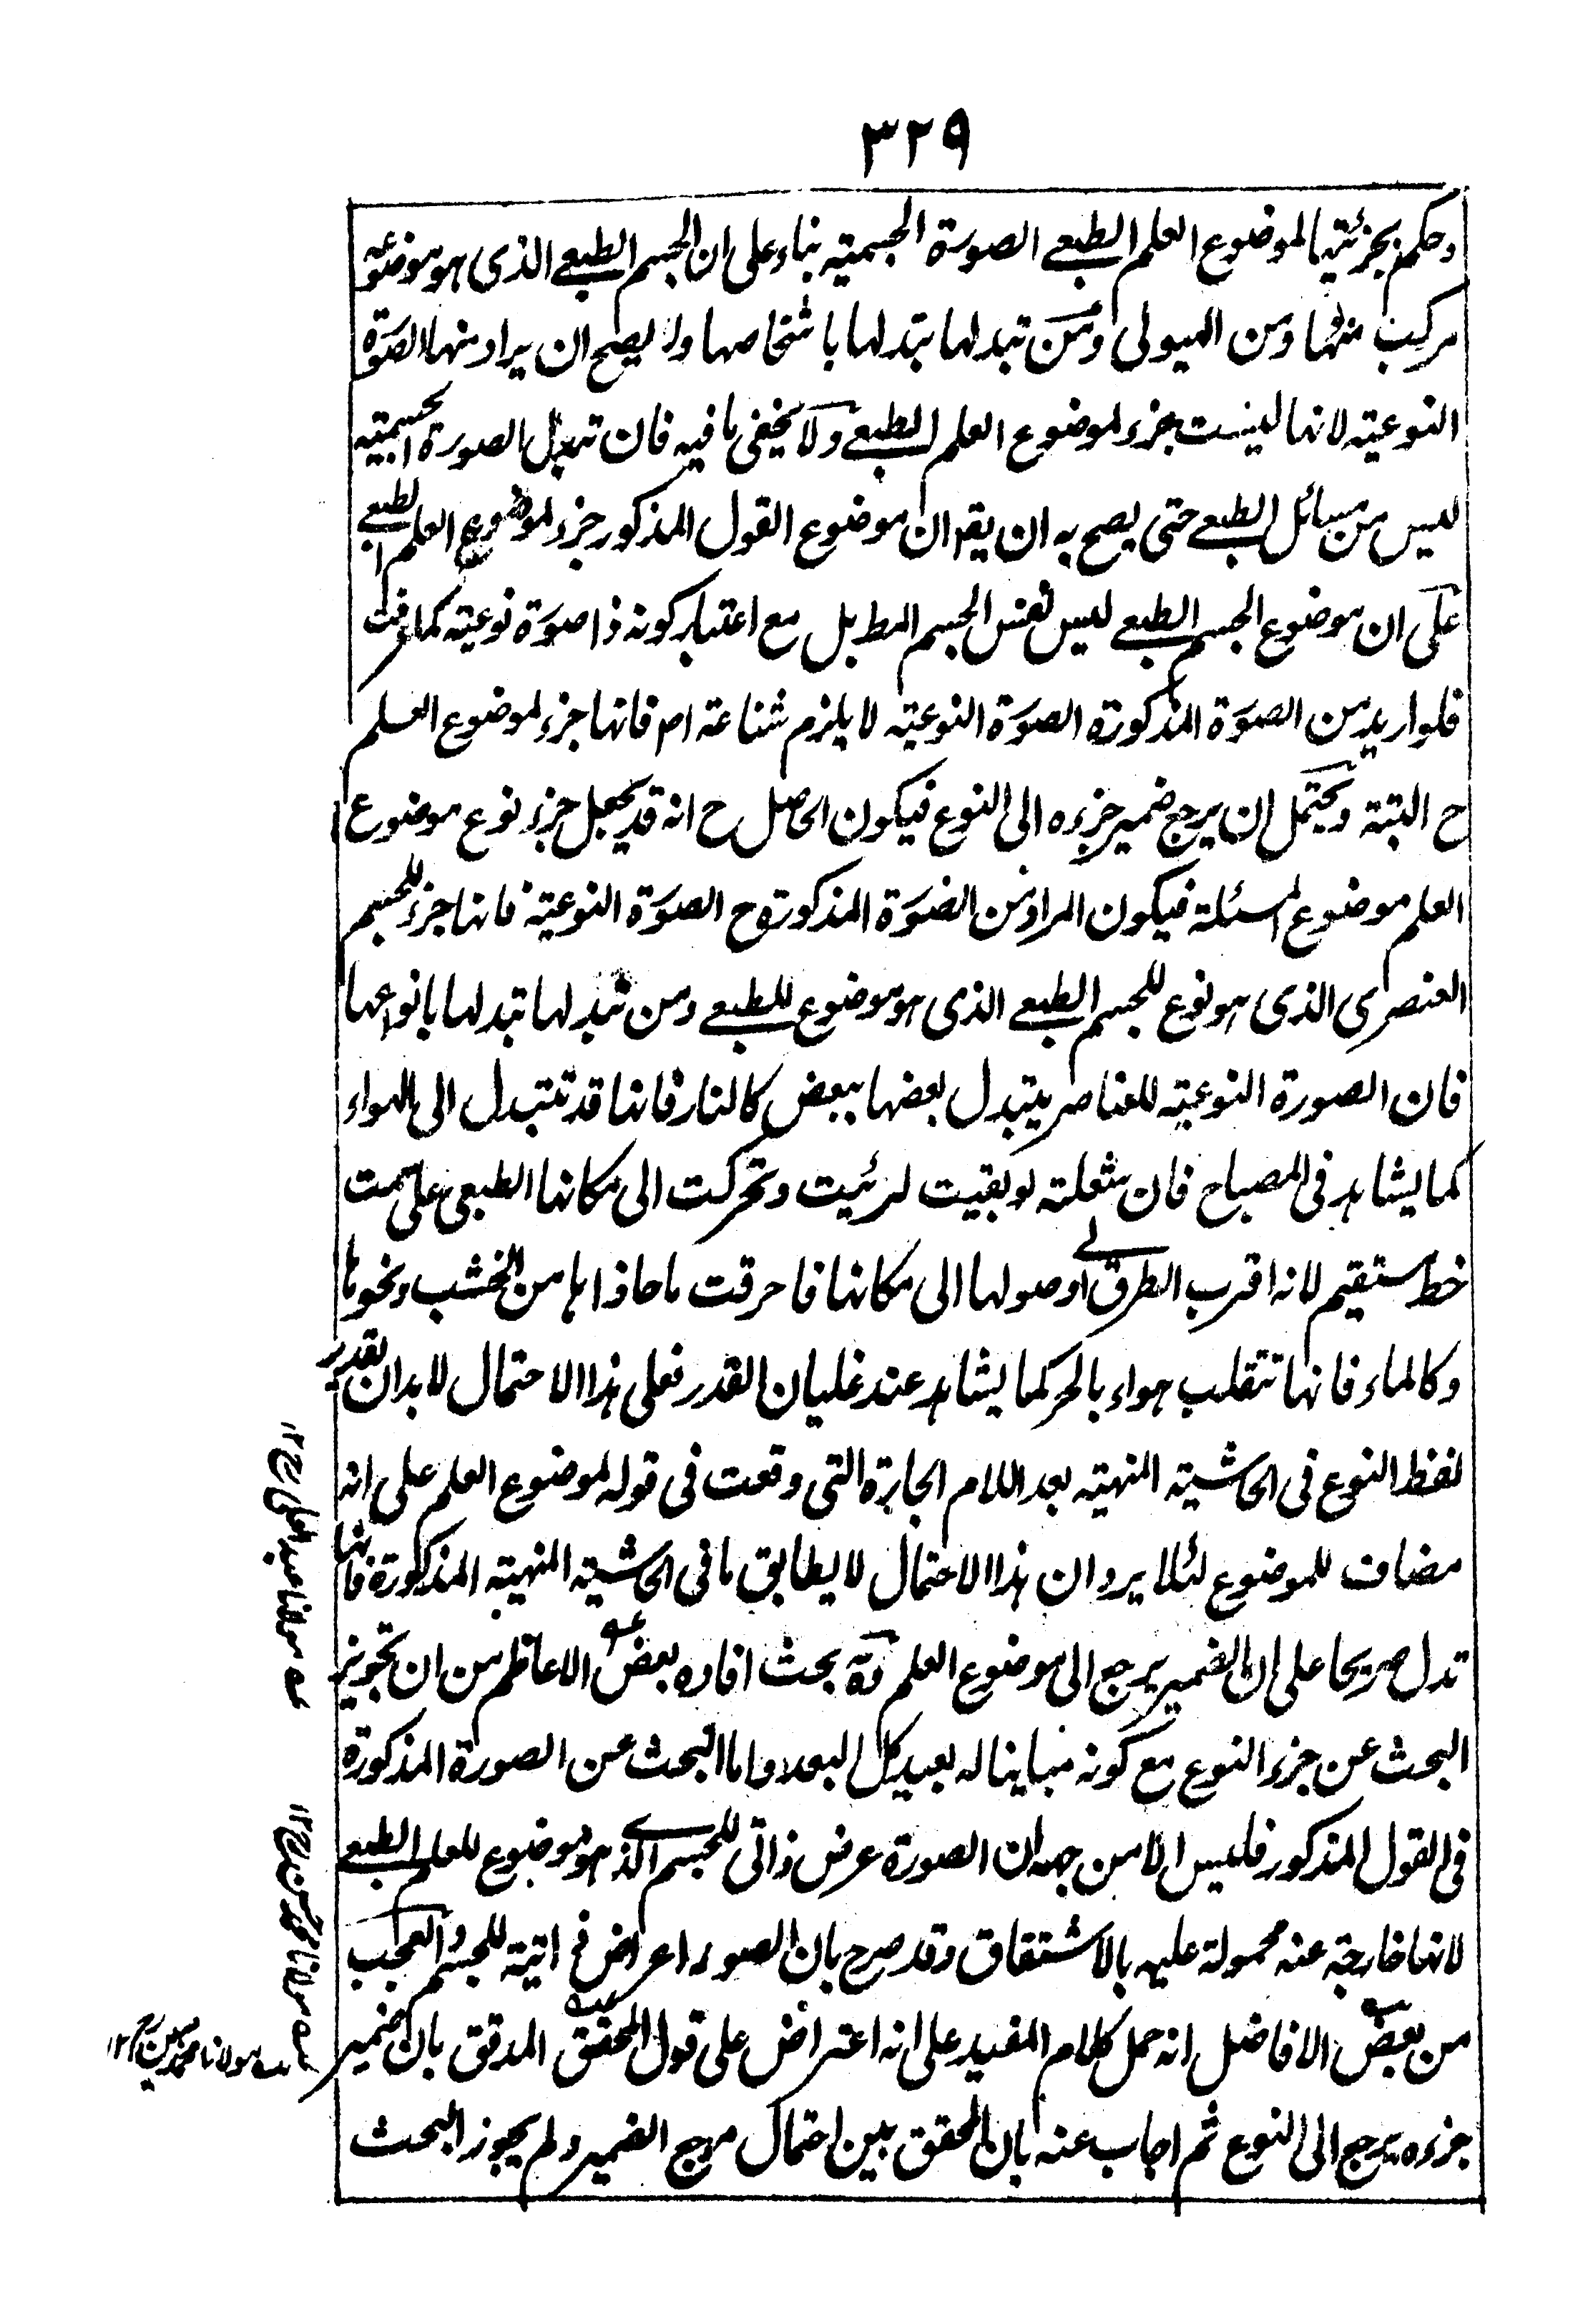 ٣٢٩
وحكم بجزئيتها لموضوع العلم الطبعي الصورة الجسمية بناء على ان الجسم الطبعي الذى هو موضوعه
مركب منها ومن الهيولى ومن تبدلها تبدلها باشخاصها ولا يصح ان يراد منها الصورة
النوعية لانها ليست جزء لموضوع العلم الطبعي ولا يخفى ما فيه فان تبدل الصورة الجسمية
ليس من مسائل الطبعي حتى يصح به ان يقم ان موضوع القول المذكور جزء لموضوع العلم الطبعي
على ان موضوع الجسم الطبعي ليس نفس الجسم المط بل مع اعتبار كونه ذا صورة نوعية كما عرفت
فلو اريد من الصورة المذكورة الصورة النوعية لا يلزم شناعة اصم فانها جزء لموضوع العلم
ح البتة ويحتمل ان يرجع ضمير جزءه الى النوع فيكون الحاصل ح انه قد يجعل جزء نوع موضوع
العلم موضوع المسئلة فيكون المراد من الصورة المذكورة ح الصورة النوعية فانها جزء للجسم
العنصرى الذى هو نوع للجسم الطبعي الذى هو موضوع للطبعي ومن تبدلها تبدلها بانواعها
فان الصورة النوعية للعناصر يتبدل بعضها ببعض كالنار فانها قد تتبدل الى الهواء
كما يشاهد فى المصباح فان شعلته لو بقيت لرئيت وتحركت الى مكانها الطبعى على سمت
خط مستقيم لانه اقرب الطرق لى وصولها الى مكانها فاحرقت ما حاذاها من الخشب ونحوها
وكالماء فانها تنقلب هواء بالحر كما يشاهد عند غليان القدر فعلى هذا الاحتمال لابد ان تقدير
لفظ النوع فى الحاشية المنهية بعد اللام الجارة التى وقعت فى قوله لموضوع العلم على انه
مضاف للموضوع لئلا يرد ان هذا الاحتمال لا يطابق ما فى الحاشية المنهية المذكورة فانها
تدل صريحا على ان الضمير يرجع الى موضوع العلم وفيه بحث افاده بعض الاعاظم من ان تجويز
البحث عن جزء النوع مع كونه مباينا له بعيد كل البعد واما البحث عن الصورة المذكورة
فى القول المذكور فليس الا من جهة ان الصورة عرض ذاتى للجسم الذى هو موضوع للعلم الطبعي
لانها خارجة عنه محمولة عليه بالاشتقاق وقد صرح بان الصور اعراض ذاتية للجسم والعجب
من بعض الافاضل انه حمل كلام المفيد على انه اعتراض على قول المحقق المدقق بان ضمير
جزءه يرجع الى النوع ثم اجاب عنه بان المحقق بين احتمال مرجع الضمير ولم يجوز البحث
مولانا عبد العلى رح ١٢
مولانا محمد حسن رح ١٢
مولانا محمد مبين رح ١٢